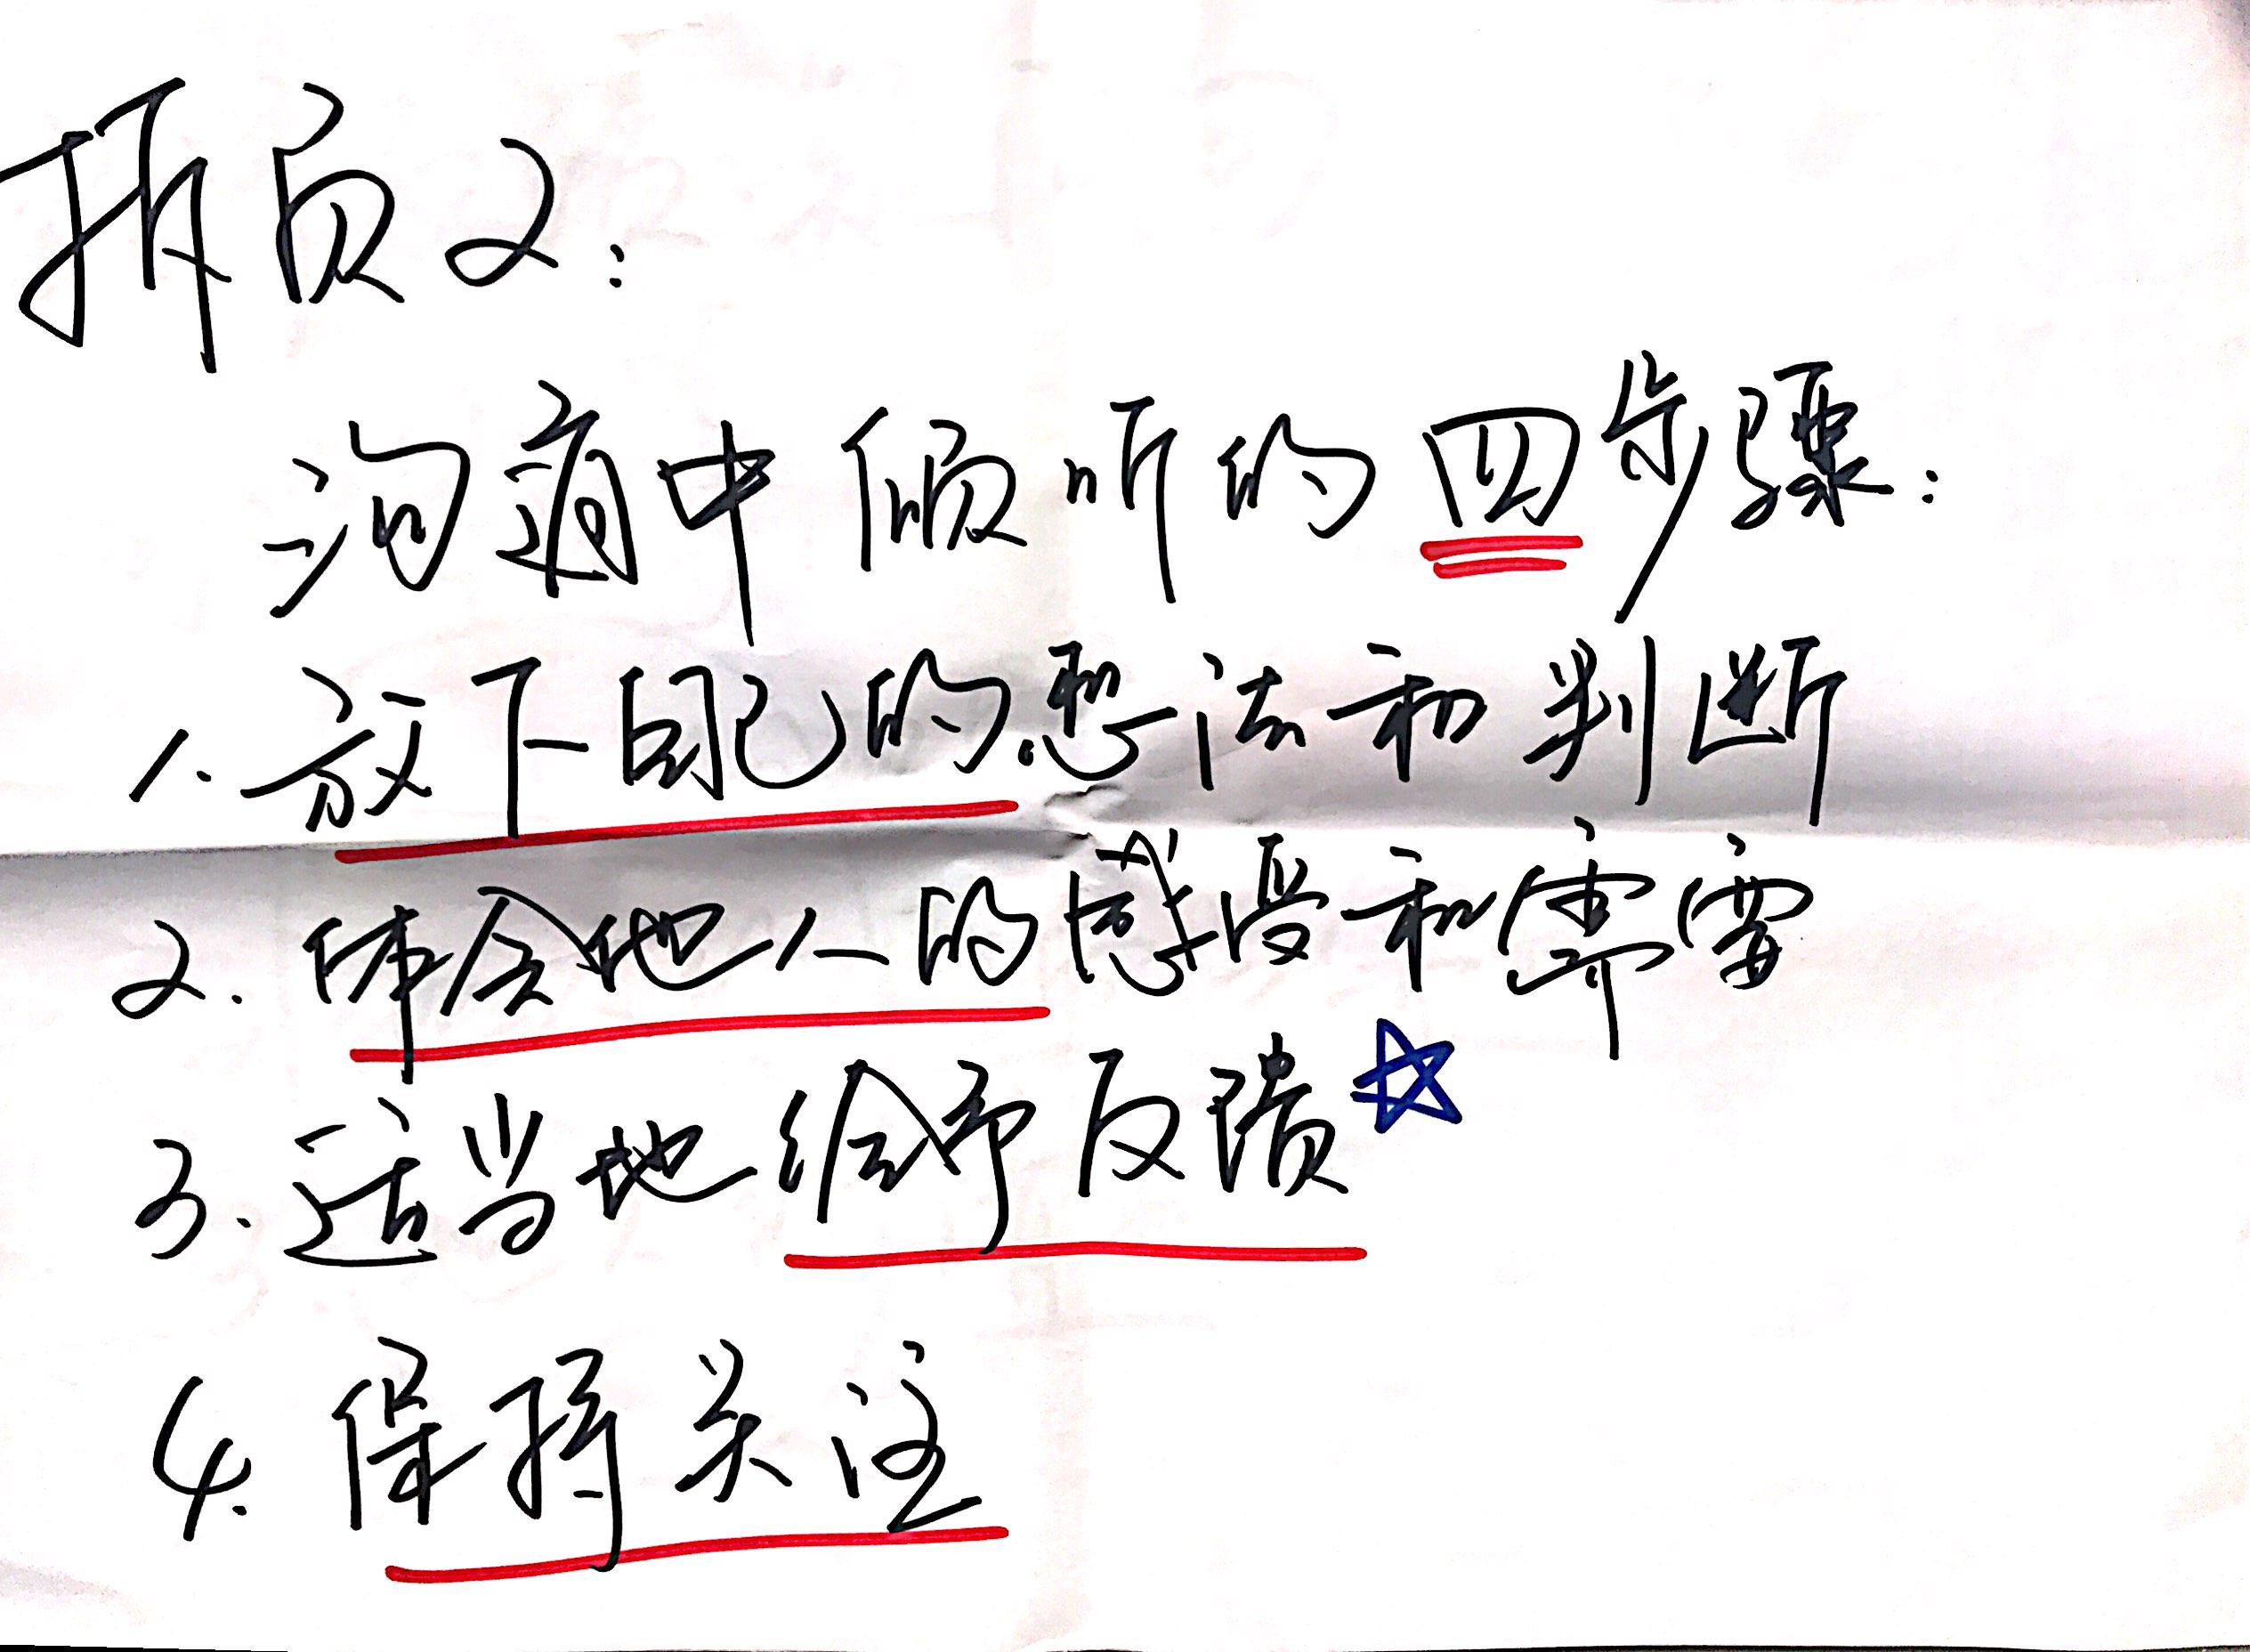 拆页2:
沟通中倾听的四步骤:
1.放下自己的想法和判断
2.体会他人的感受和需要
3.适当地给予反馈☆
4.保持关注